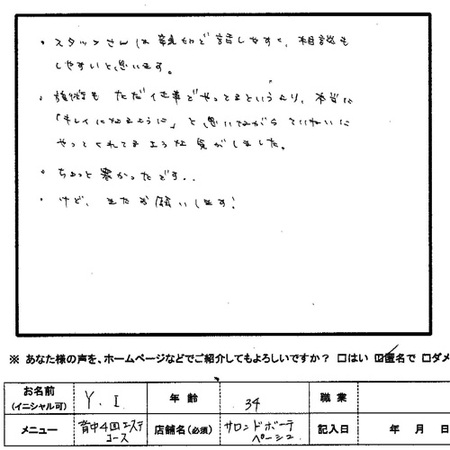 ・スタッフさんは親切で話しやすく、相談も
しやすいと思います。
・技術も ただ仕事でやってるというより、本当に
「キレイになるように」と思いながら ていねいに
やってくれてるような気がしました。
・ちょっと寒かったです..
・けど、またお願いします!
※ あなた様の声を、ホームページなどでご紹介してもよろしいですか？ □はい ☑匿名で □ダメ
お名前 (イニシャル可) Y. I 年 齢 34 職 業
メニュー 背中4回エステコース 店舗名(必須) サロンドボーテ ペーシュ 記入日 年 月 日